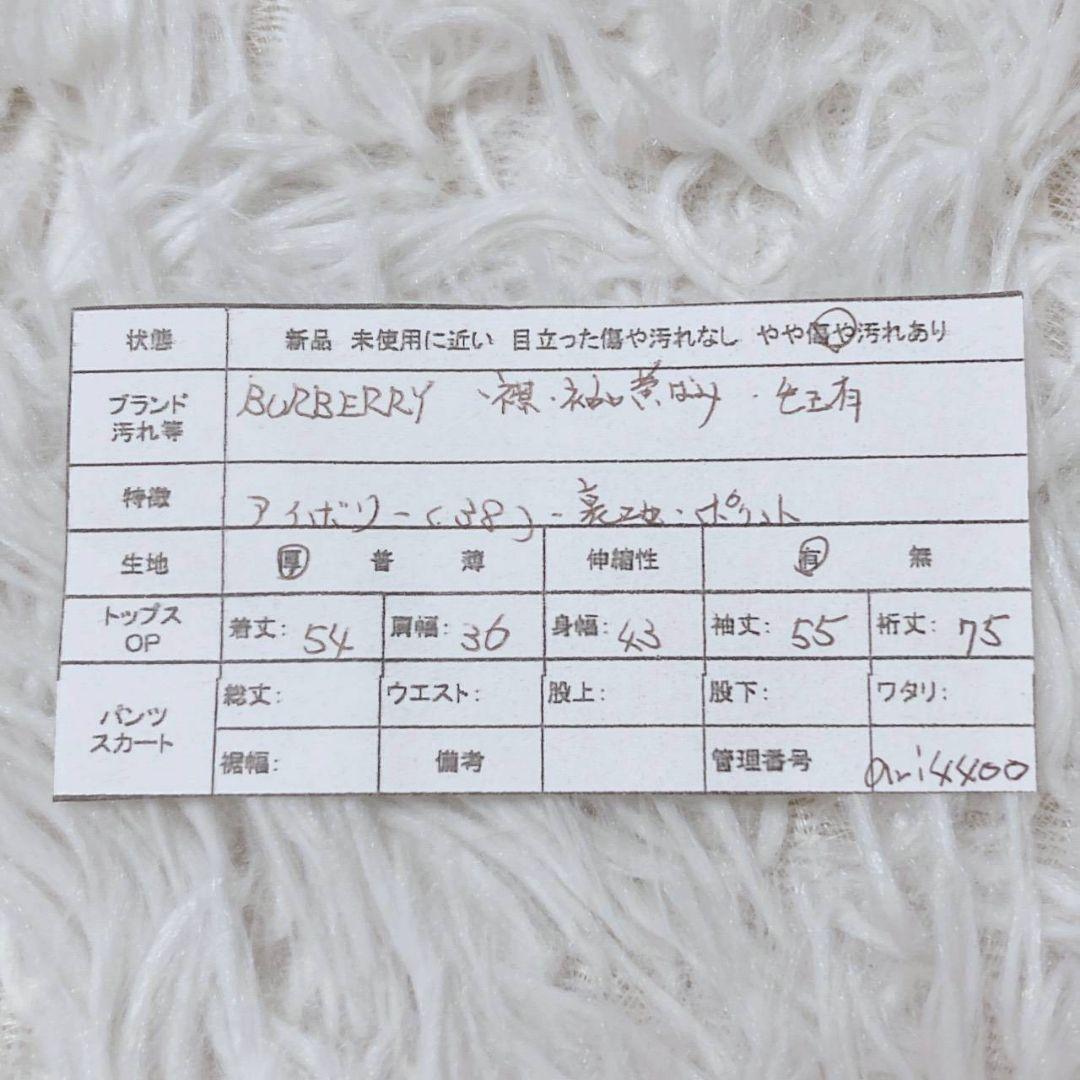 状態 新品 未使用に近い 目立った傷や汚れなし やや傷や汚れあり
ブランド 汚れ等 BURBERRY 、襟・袖口黄ばみ・毛玉有
特徴 アイボリー(38)・裏地・ポケット
生地 厚 普 薄 伸縮性 有 無
トップス OP 着丈: 54 肩幅: 36 身幅: 43 袖丈: 55 裄丈: 75
パンツ スカート 総丈: ウエスト: 股上: 股下: ワタリ:
裾幅: 備考 管理番号 ari4400